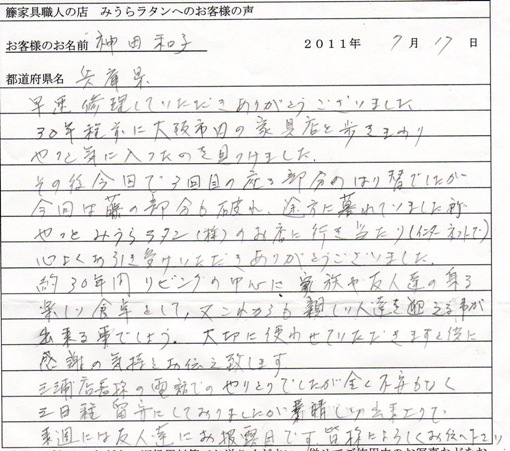 籐家具職人の店 みうらラタンへのお客様の声
お客様のお名前 神田和子 2011年 7月 17日
都道府県名 兵庫県
早速修理していただきありがとうございました
30年程前に大阪市内の家具店を歩きまわり
やっと気に入ったのを見つけました。
その後今回で3回目の座る部分のはり替でしたが
今回は藤の部分も破れ、途方に暮れていました所
やっとみうらラタン(株)のお店に行き当たり(インターネットで)
心よくお引き受けいただきありがとうございました。
約30年間リビングの中心に家族や友人達の集る
楽しい食卓として、又これからも親しい人達を迎える事が
出来る事でしょう。大切に使わせていただきますと供に
感謝の気持をお伝え致します
三浦店長様の電話でのやりとりでしたが全く不安もなく
三日程留守にしておりましたが素晴しい出来上りで
来週には友人達にお披露目です。皆様によろしくお伝へ下さい